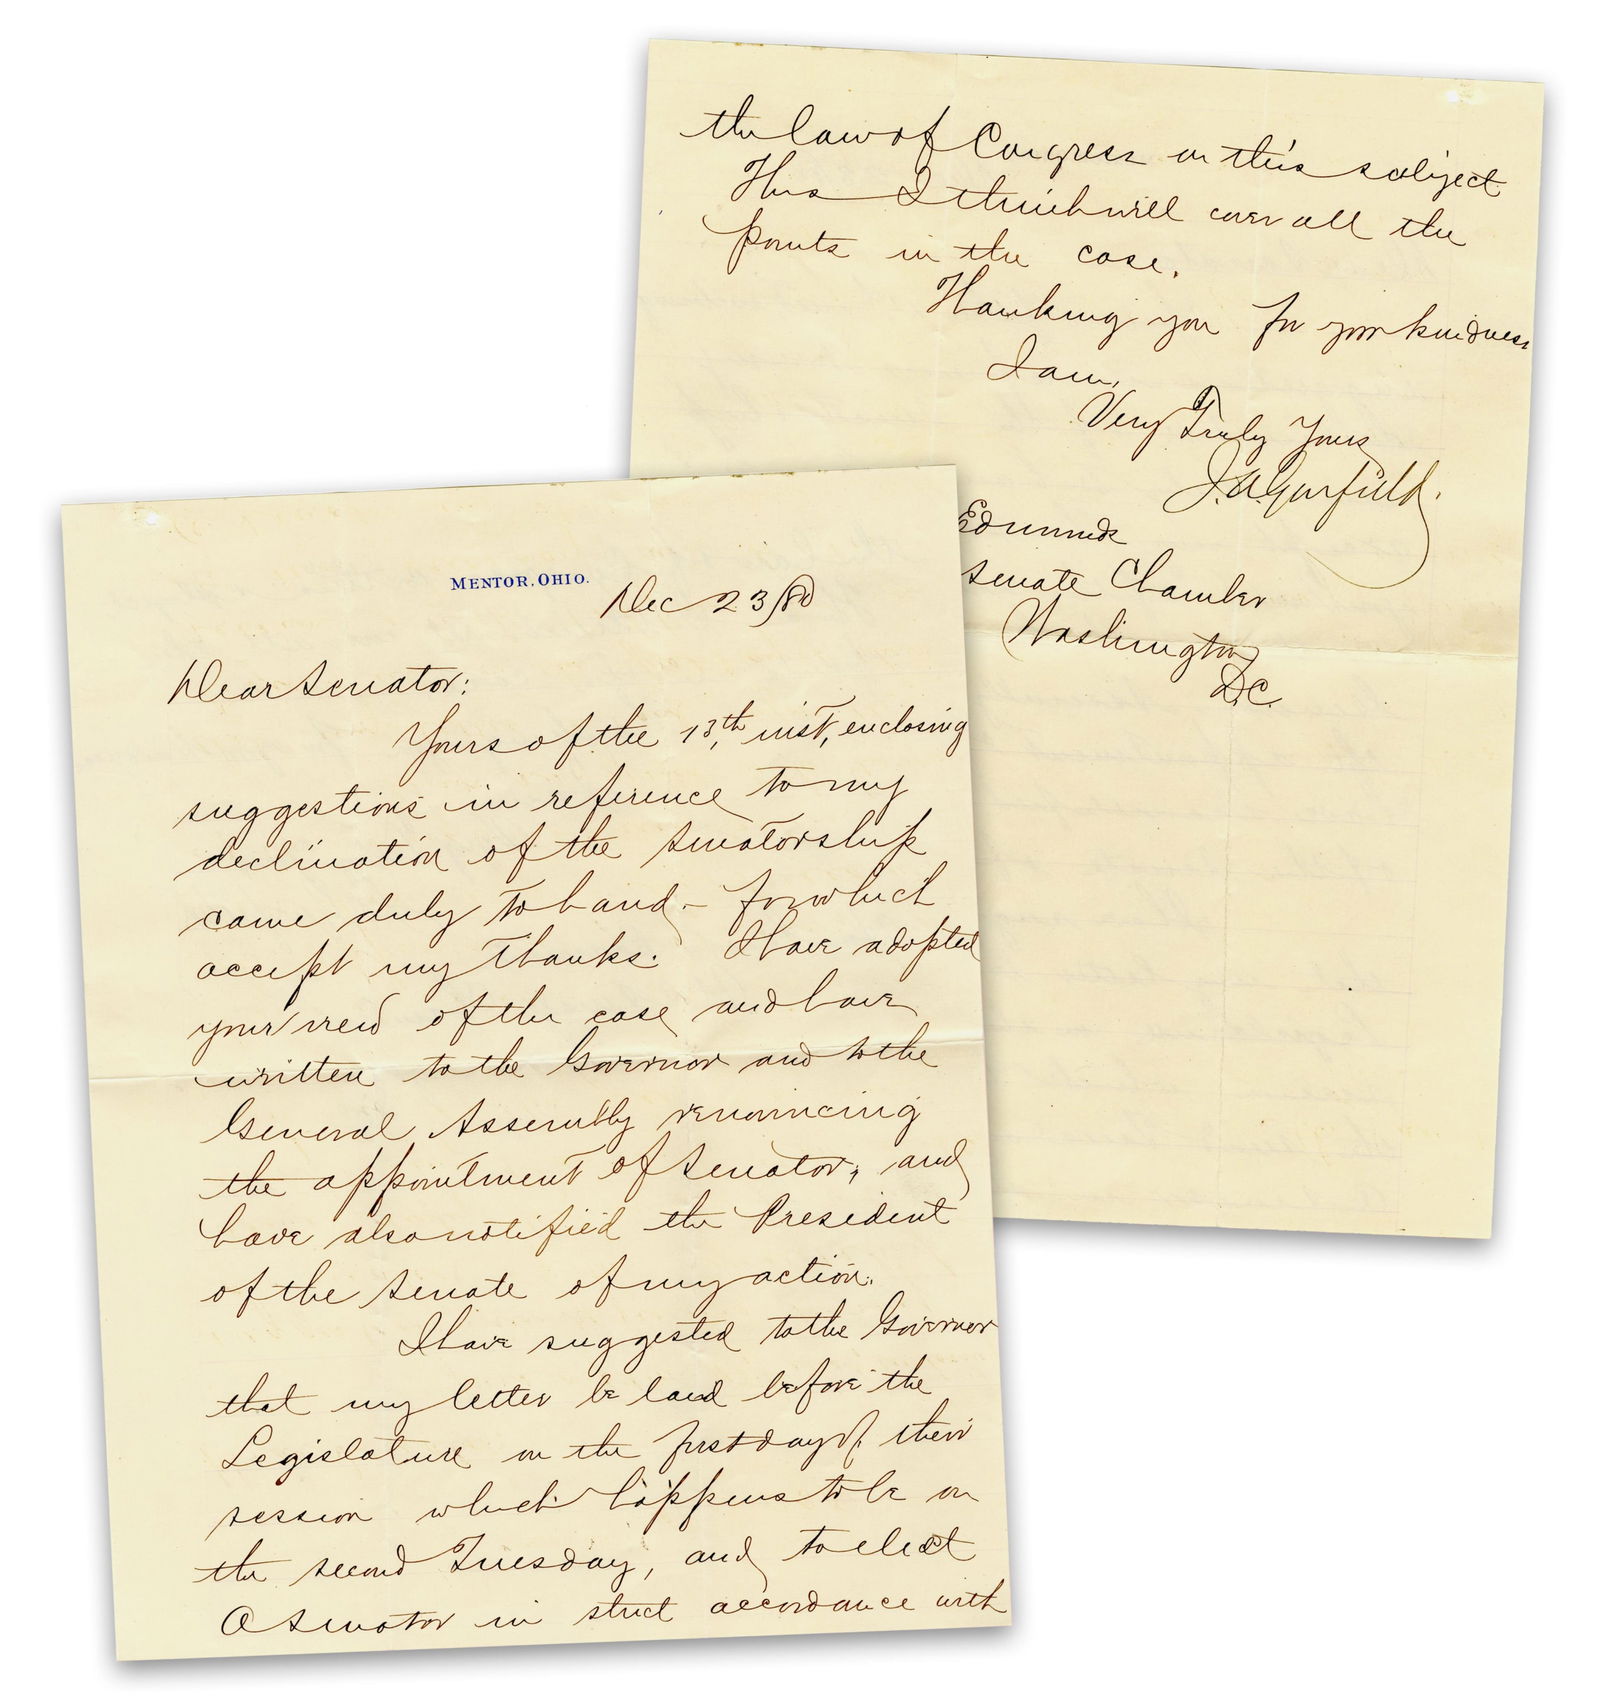 MENTOR, OHIO.
Dec 23/80
Dear Senator:
Yours of the 13th, inst, enclosing
suggestions in reference to my
declination of the Senatorship
came duly to hand - for which
accept my thanks. I have adopted
your view of the case and have
written to the Governor and to the
General Assembly renouncing
the appointment of Senator, and
have also notified the President
of the Senate of my action.
I have suggested to the Governor
that my letter be laid before the
Legislature on the first day of their
session which happens to be on
the second Tuesday, and to elect
a Senator in strict accordance with
the law of Congress on this subject
This I think will cover all the
points in the case.
Thanking you for your kindness
I am,
Very Truly Yours
J.A. Garfield.
Edmunds
Senate Chamber
Washington
D.C.